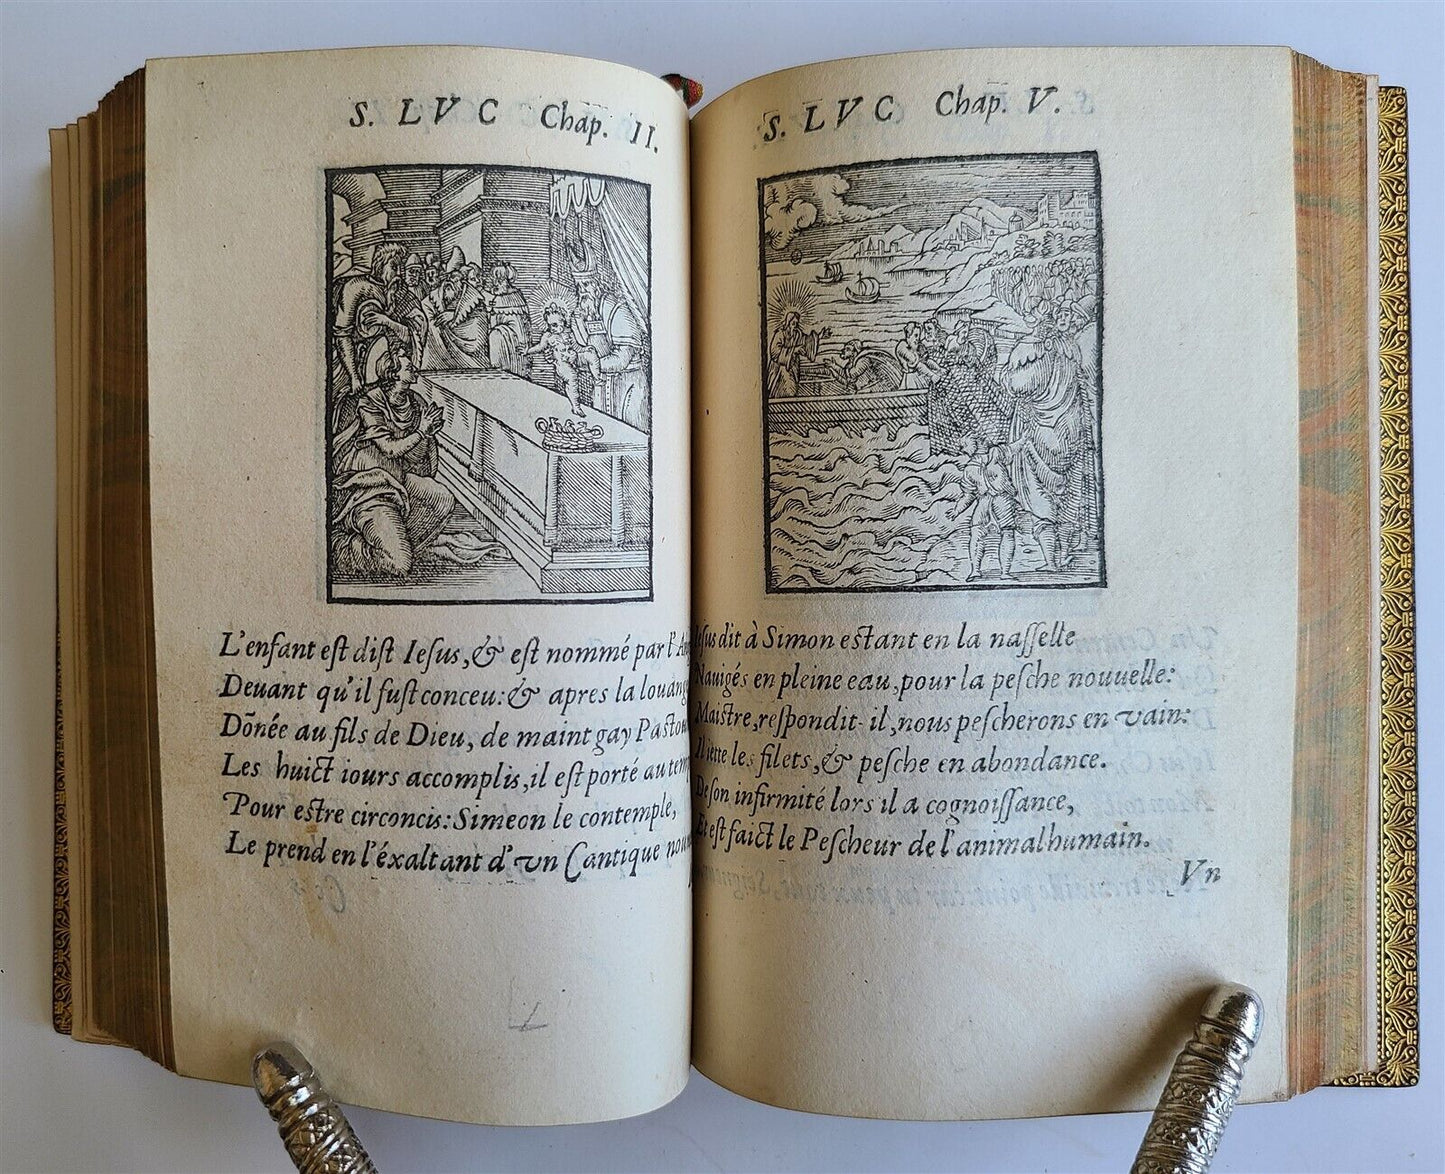 S. LVC Chap. II.
L'enfant est dist Iesus, & est nommé par l'
Deuant qu'il fust conceu: & apres la louang
Dõnée au fils de Dieu, de maint gay Pastou
Les huict iours accomplis, il est porté au tem
Pour estre circoncis: Simeon le contemple,
Le prend en l'éxaltant d'vn Cantique
S. LVC Chap. V.
Iesus dit à Simon estant en la nasselle
Nauigés en pleine eau, pour la pesche nouuelle:
Maistre, respondit-il, nous pescherons en vain:
Il iette les filets, & pesche en abondance.
De son infirmité lors il a cognoissance,
Et est faict le Pescheur de l'animal humain.
Vn